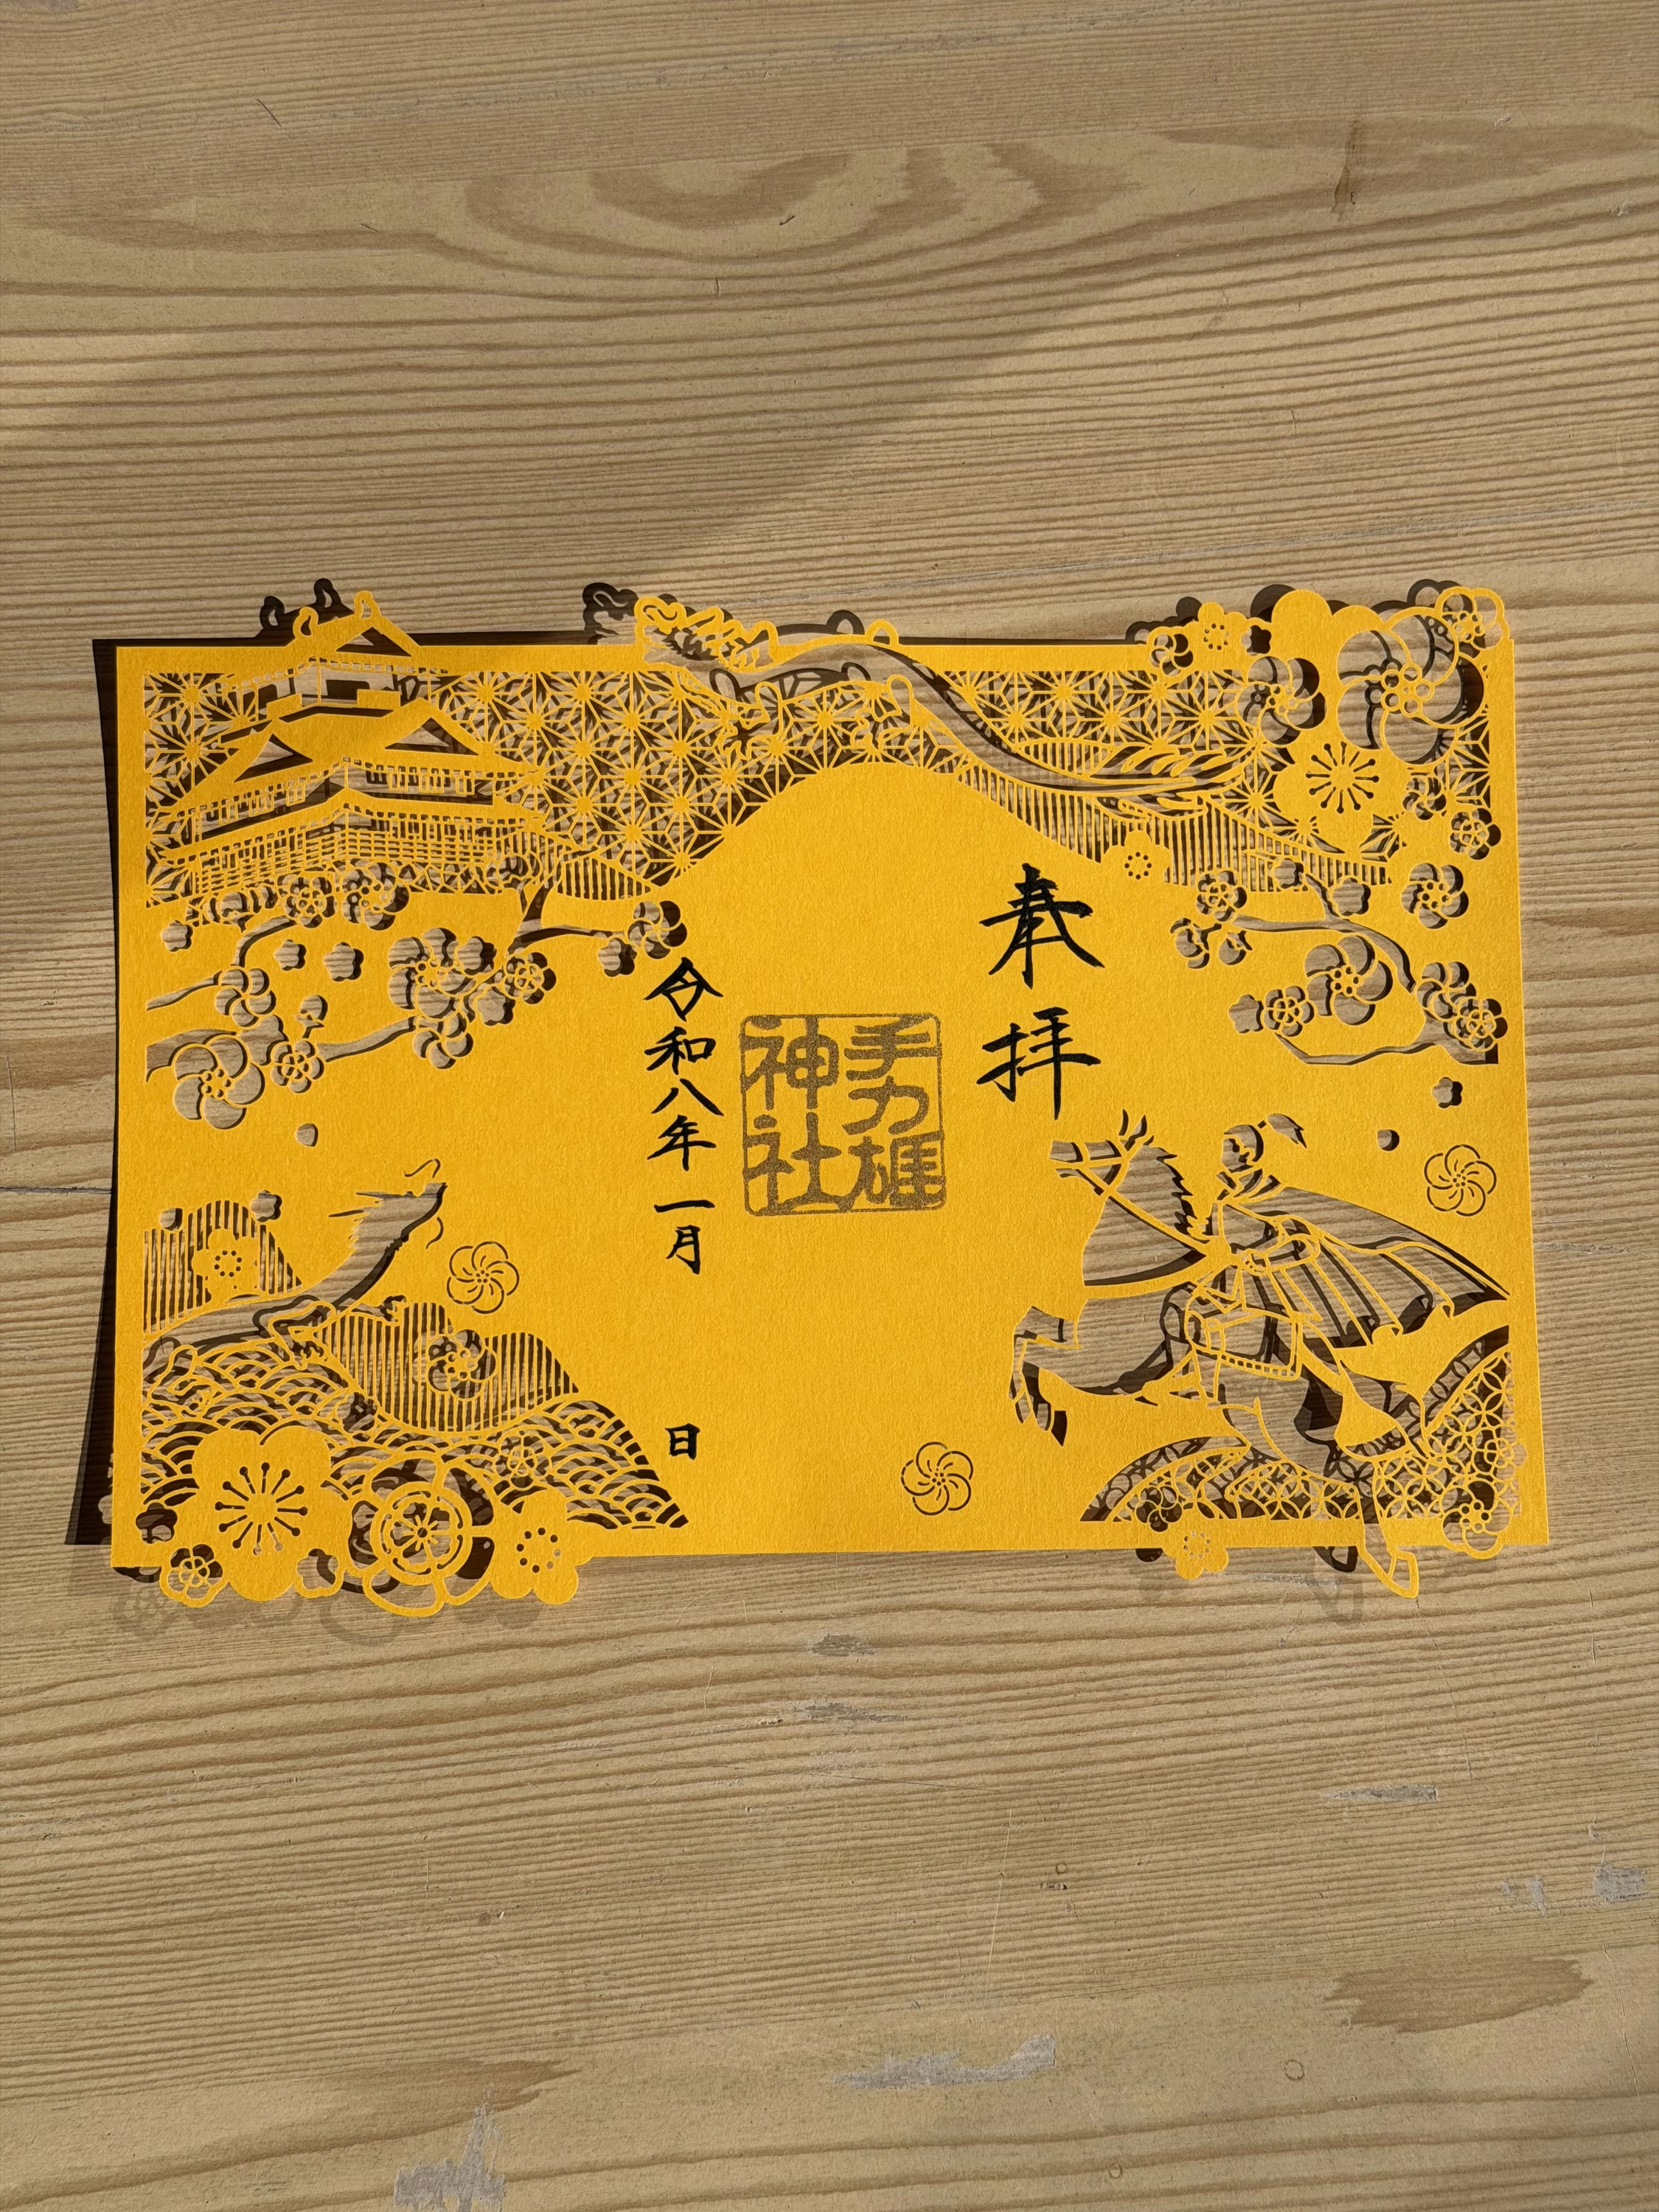 奉拝
手力雄
神社
令和八年一月
日